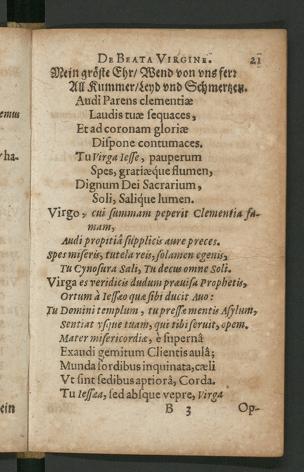 DE BEATA VIRGINE. 21
Mein gröste Ehr/ Wend von vns ferr
All Kummer/Leyd vnd Schmertzen.
Audi Parens clementiæ
Laudis tuæ sequaces,
Et ad coronam gloriæ
Dispone contumaces.
Tu Virga Iesse, pauperum
Spes, gratiæque flumen,
Dignum Dei Sacrarium,
Soli, Salique lumen.
Virgo, cui summam peperit Clementia fa-
mam,
Audi propitiâ supplicis aure preces.
Spes miseris, tutela reis, solamen egenis,
Tu Cynosura Sali, Tu decus omne Soli.
Virga es veridicis dudum prævisa Prophetis,
Ortum à Iessæo quæ sibi ducit Auo:
Tu Domini templum, tu pressæ mentis Asylum,
Sentiat vsque tuam, qui tibi seruit, opem.
Mater misericordiæ, è supernâ
Exaudi gemitum Clientis aulâ;
Munda sordibus inquinata, cæli
Vt sint sedibus aptiorâ, Corda.
Tu Iessæa, sed absque vepre, Virga
B 3 Op-
ein
ha-